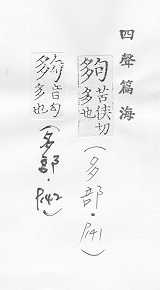 四聲篇海
夠苦侯切多也（多部．P141）
音勾多也（多部．P142）